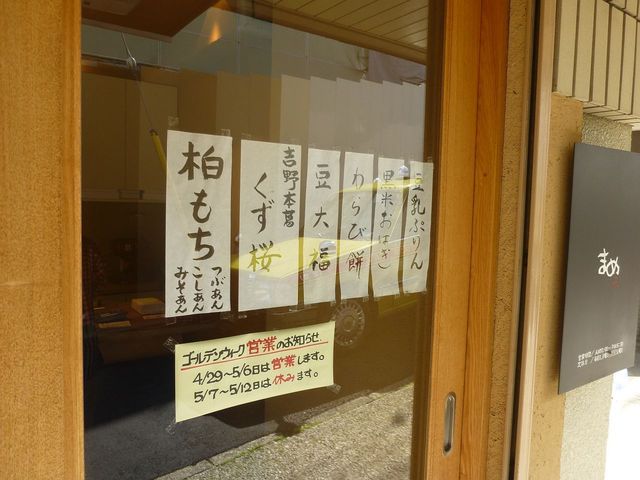 柏もち
つぶあん
こしあん
みそあん
吉野本葛
くず桜
豆大福
わらび餅
黒米おはぎ
豆乳ぷりん
ゴールデンウィーク営業のお知らせ
4/29〜5/6日は営業します。
5/7〜5/12日は休みます。
まめ